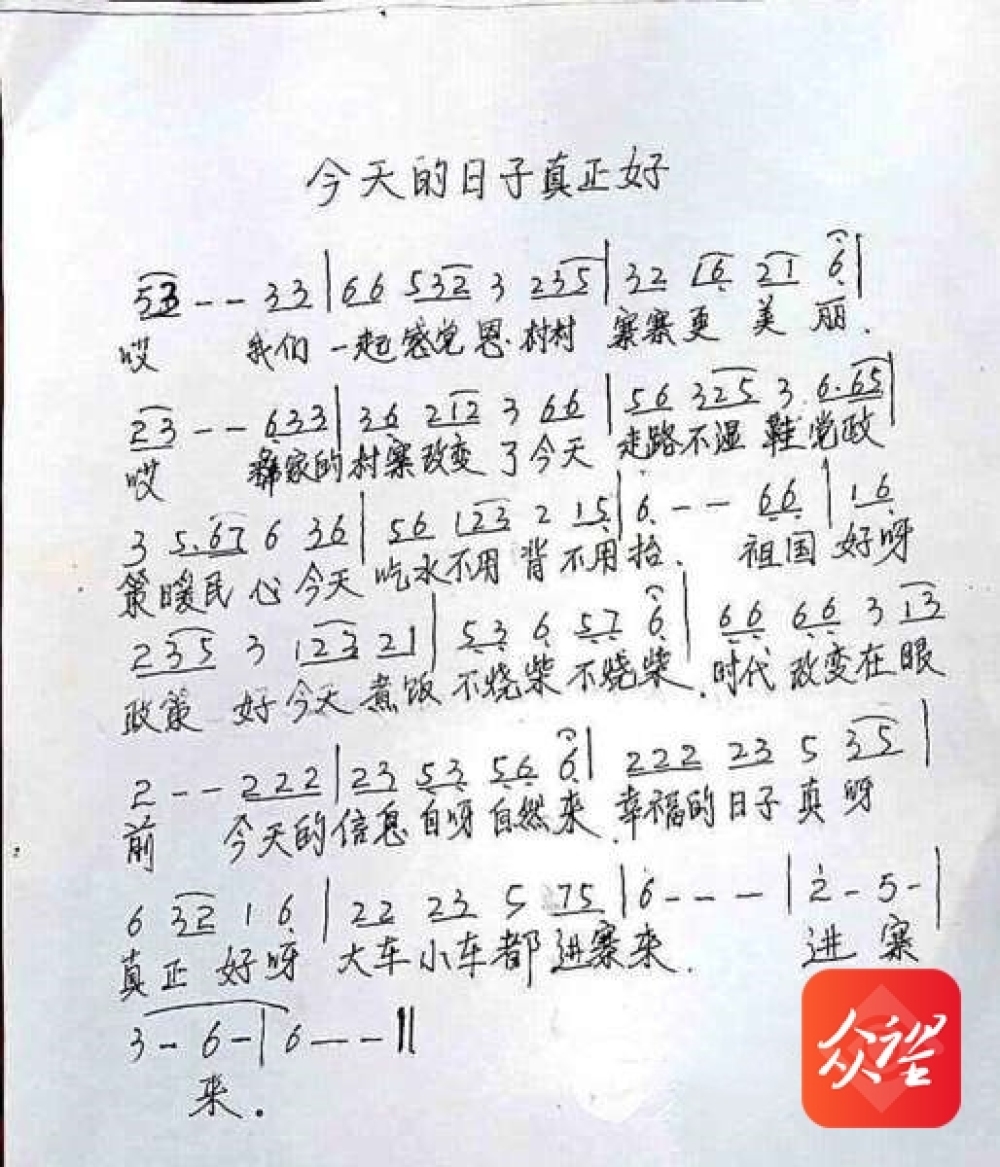 今天的日子真正好
53 - - 33 | 66 532 3 235 | 32 16 21 6 |
哎 我们一起感党恩.村村寨寨更美丽.
23 - - 633 | 36 212 3 66 | 56 325 3 6.65 |
哎 彝家的村寨改变了今天走路不湿鞋党政
3 5.67 6 36 | 56 123 2 15 | 6 - - 66 | 16
策暖民心今天吃水不用背不用抬. 祖国好呀
235 3 123 21 | 53 6 57 6 | 66 66 3 13
政策好今天煮饭不烧柴不烧柴.时代改变在眼
2 - - 222 | 23 53 56 6 | 222 23 5 35 |
前 今天的信息自呀自然来.幸福的日子真呀
6 32 1 6 | 22 23 5 75 | 6 - - - | 2 - 5 - |
真正好呀大车小车都进寨来. 进寨
3 - 6 - | 6 - - - ||
来.
众望